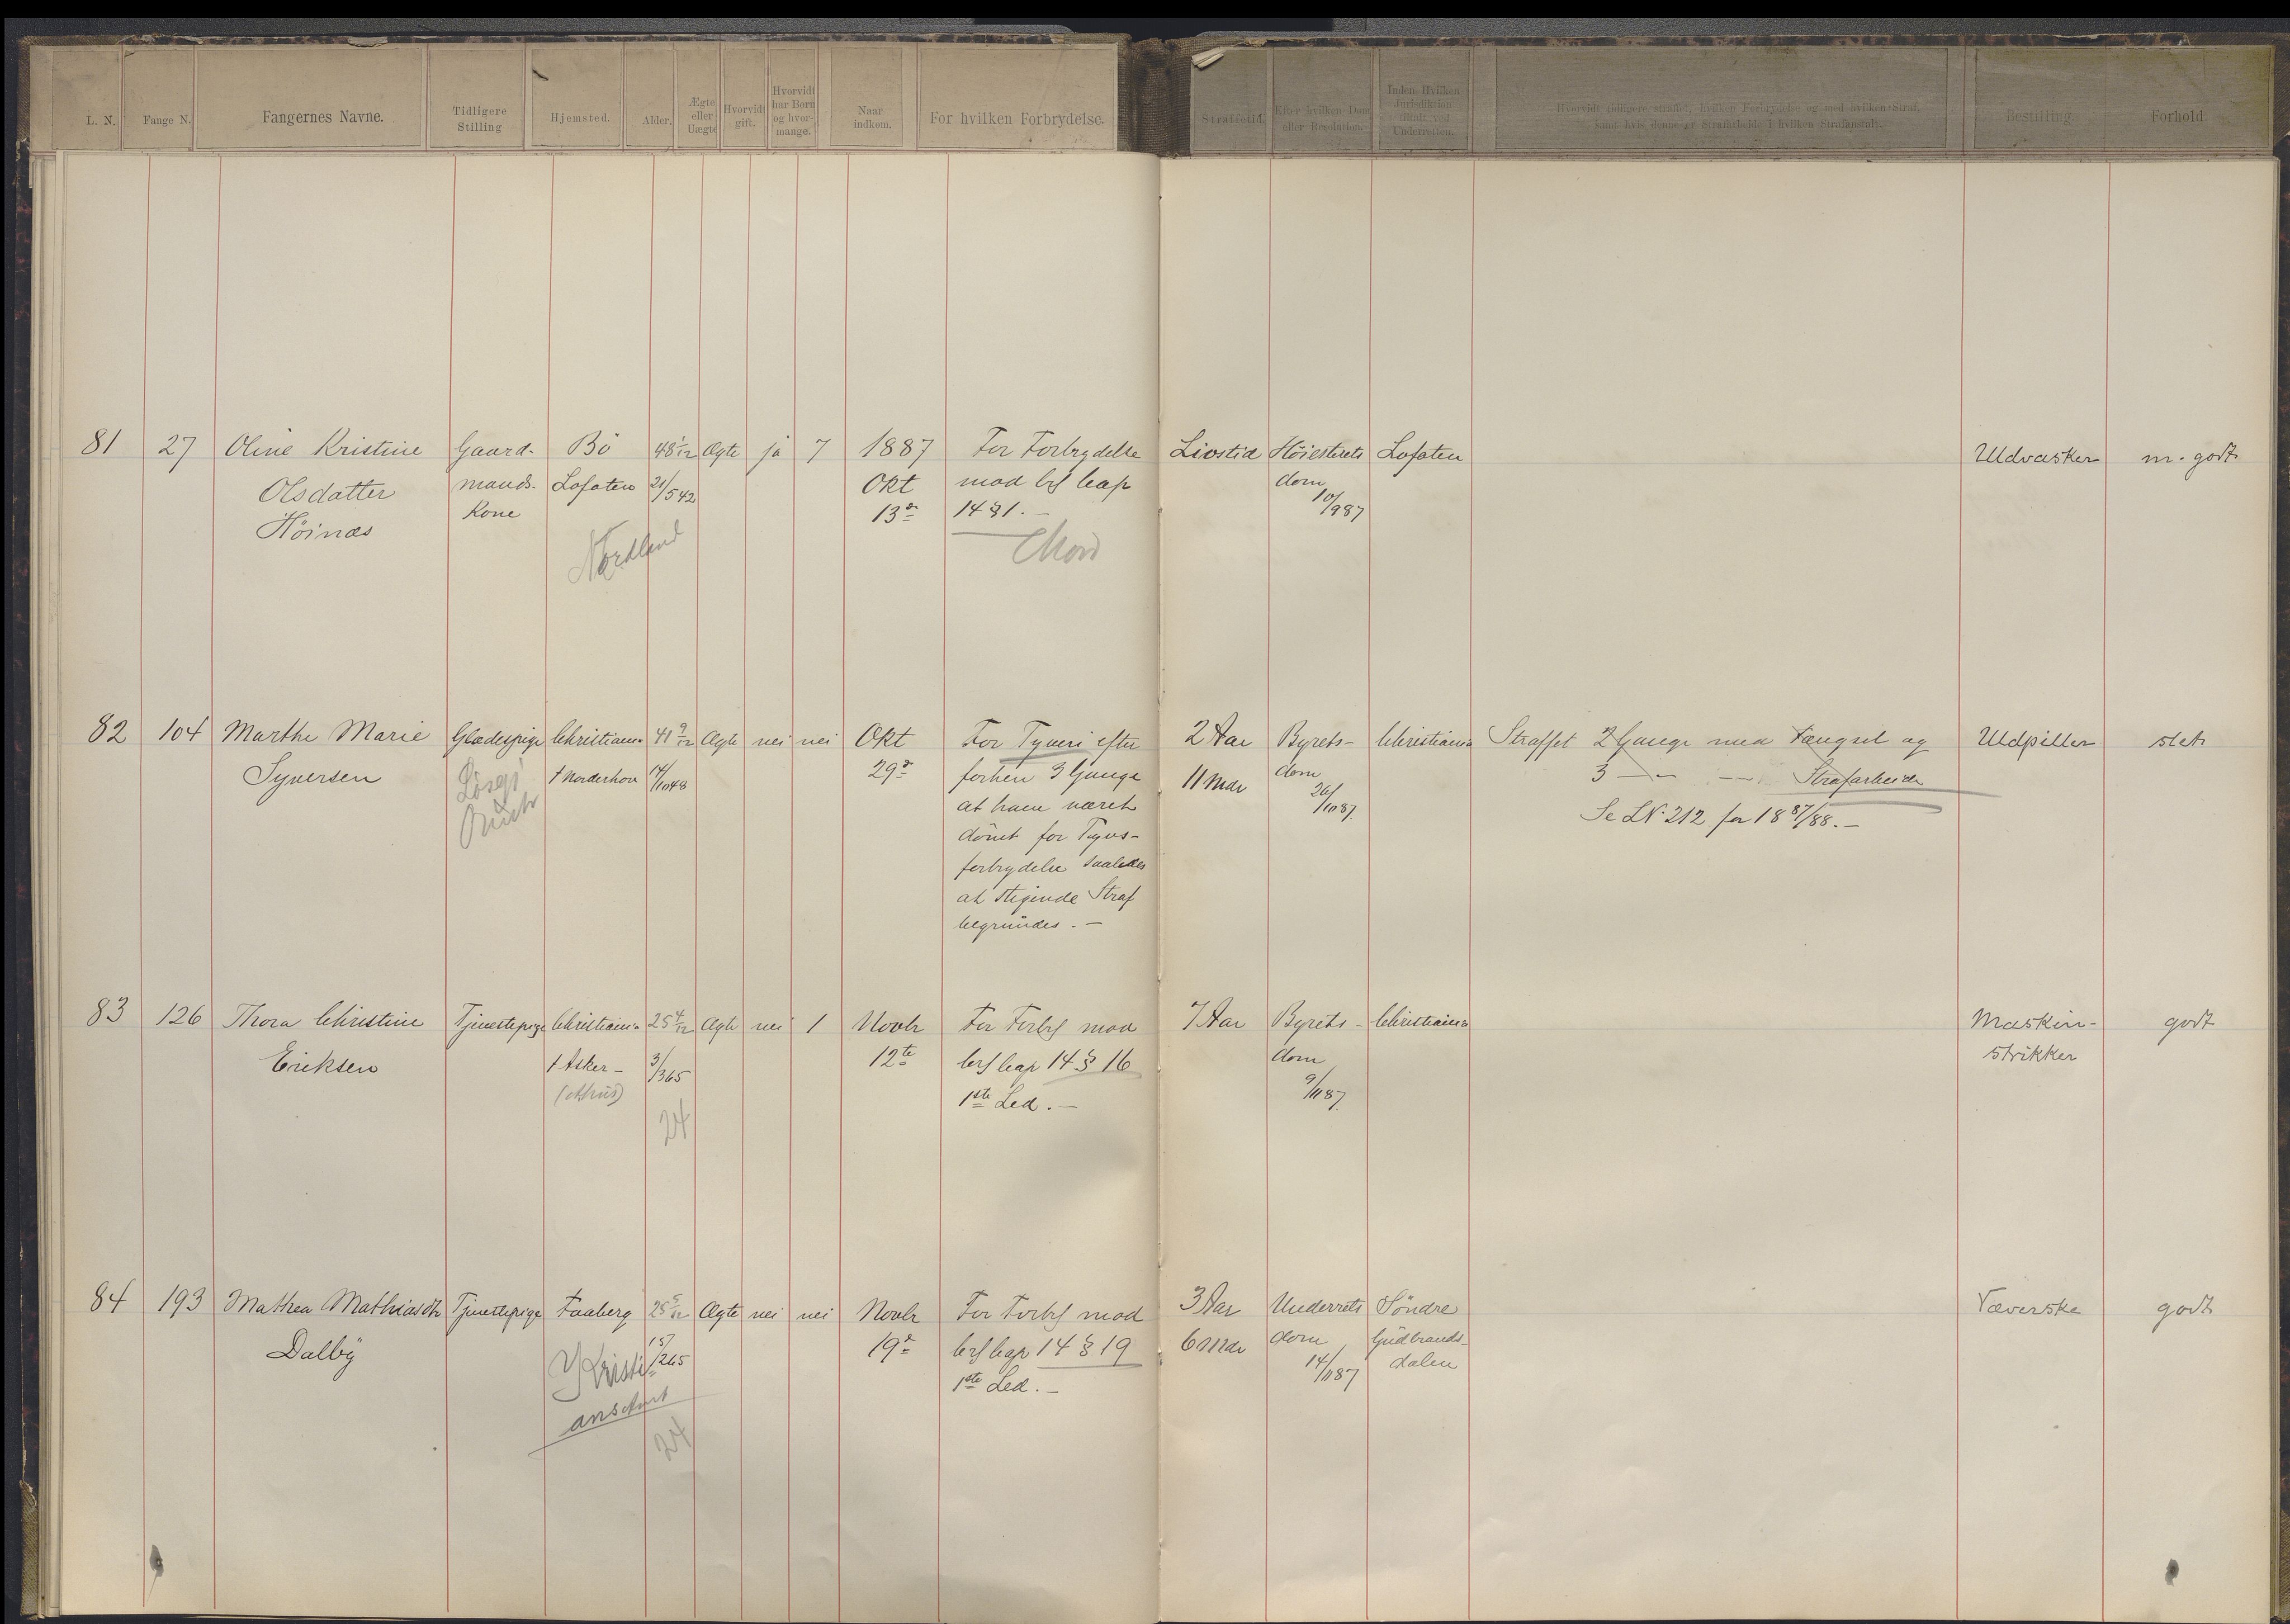 L. N.
Fange N.
Fangernes Navne.
Tidligere
Stilling
Hjemsted.
Alder.
Ægte
eller
Uægte
Hvorvidt
gift.
Hvorvidt
har Børn
og hvor-
mange.
Naar
indkom.
For hvilken Forbrydelse.
Straffetid.
Efter hvilken Dom
eller Resolution.
Inden Hvilken
Jurisdiktion
tiltalt ved
Underretten.
Hvorvidt tidligere straffet, hvilken Forbrydelse og med hvilken Straf,
samt hvis denne er Strafarbeide i hvilken Strafanstalt.
Bestilling.
Forhold
81
27
Oline Kristine
Olsdatter
Höinæs
Gaard-
mands-
Kone
Bö
Lofoten
Nordland
48 1/12
21/5 42
Ægte
ja
7
1887
Okt
13de
For Forbrydelse
mod Crl Cap
14 § 1. -
Mord
Livstid
Höiesterets
dom
10/9 87
Lofoten
Udvasker
m. godt
82
104
Marthe Marie
Syversen
Glædespige
Løsgj
Christiania
f Norderhov
41 9/12
14/1 48
Ægte
nei
nei
Okt
29de
For Tyveri efter
forhen 3 Gange
at have været
dömt for Tyvs-
forbrydelse saaledes
at stigende Straf
begrundes. -
2 Aar
11 Mdr
Byrets-
dom
26/10 87.
Christiania
Straffet 2 Gange med Fængsel og
3 -"- -"- Strafarbeide
Se LN. 212 for 18 87/88. -
Udpiller
slet
83
126
Thora Christine
Eriksen
Tjenestepige
Christiania
f Asker -
(Akrhus)
25 4/12
3/3 65
24
Ægte
nei
1
Novbr
12te
For Forbr mod
Crl Cap 14 § 16
1ste Led. -
7 Aar
Byrets-
dom
9/11 87.
Christiania
Maskin-
strikker
godt
84
193
Mathea Mathiasdtr
Dalby
Tjenestepige
Faaberg
Kristi-
ans Amt
25 5/12
15/2 65
24
Ægte
nei
nei
Novbr
19de
For Forbr mod
Crl Cap 14 § 19
1ste Led. -
3 Aar
6 Mdr
Underrets
dom
14/11 87
Söndre
Gudbrands-
dalen
Væverske
godt